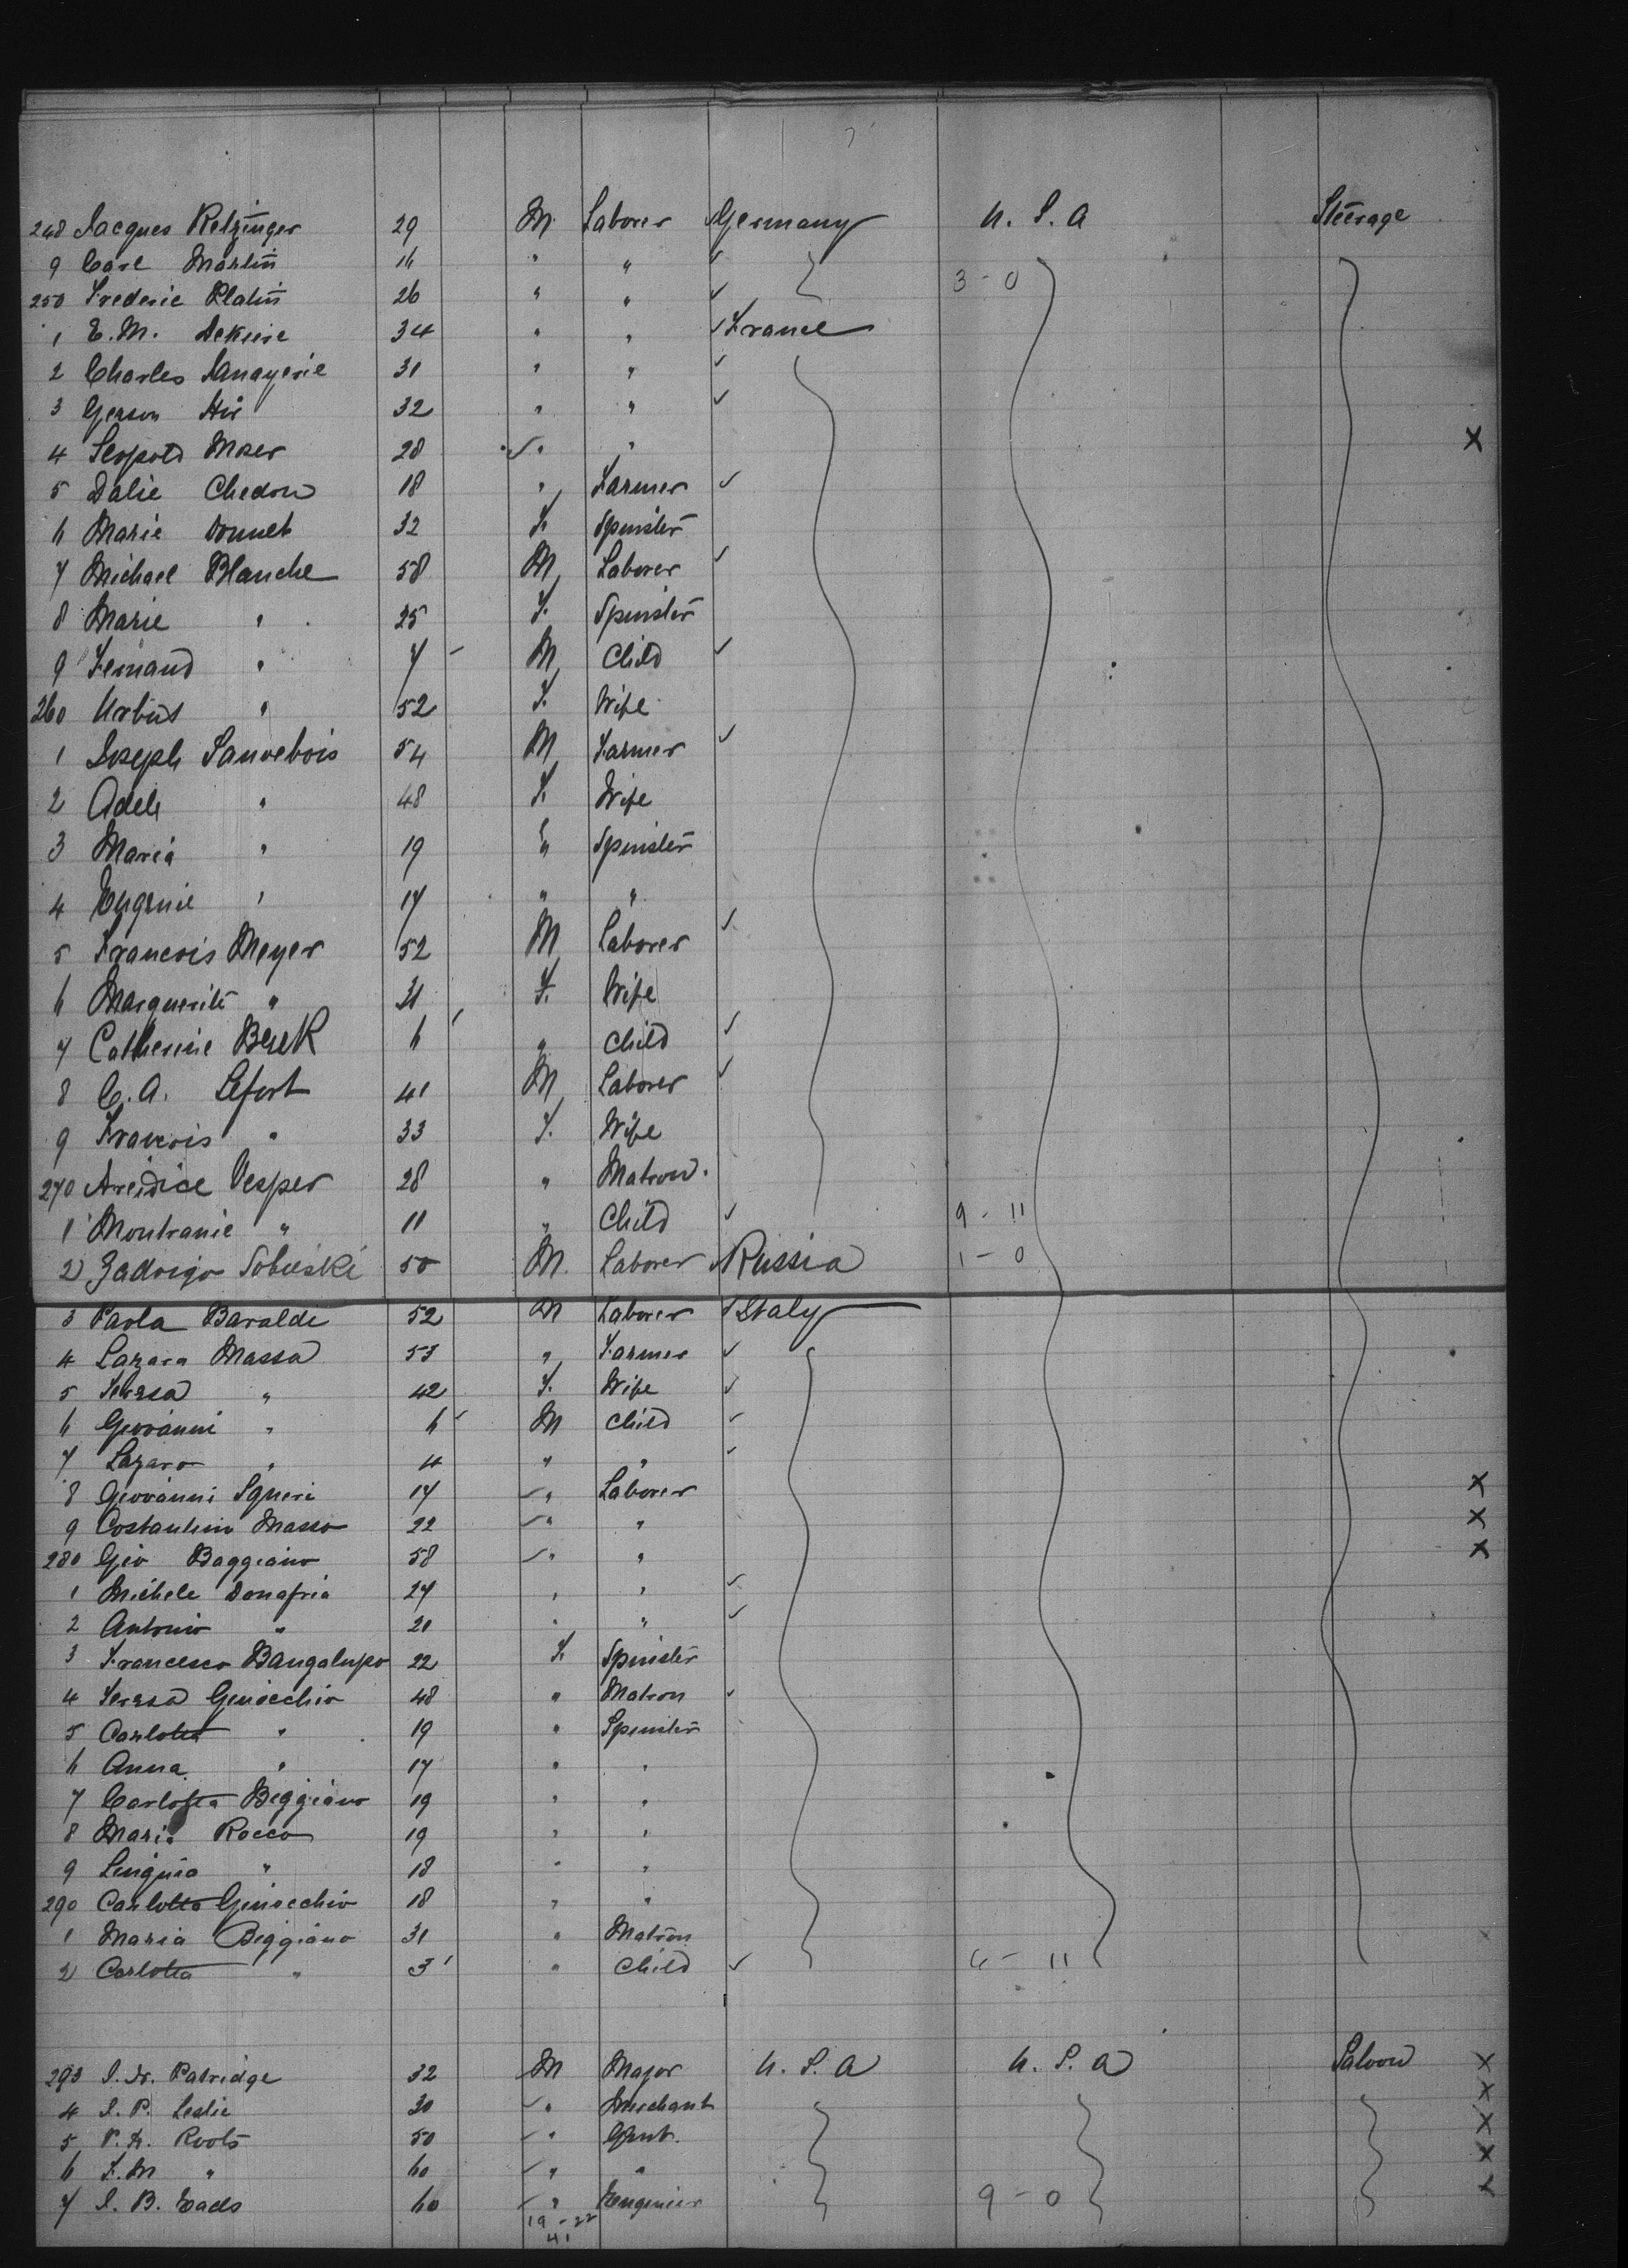 248 Jacques Retzinger 29 M. Laborer Germany U. S. A Steerage
9 Carl Martin 16 " " ✓ 3-0
250 Frederic Platin 26 " " ✓
1 E. M. 34 " " ✓ France
2 Charles 31 " " ✓
3 Gerson Hir 32 " " ✓
4 Leopold Moser 28 ✓ " " X
5 Dalie Chedon 18 " Farmer ✓
6 Marie Vonnet 32 F. Spinster
7 Michael Blanche 58 M Laborer ✓
8 Marie " 25 F. Spinster
9 Fernand " 7 M Child ✓
260 " 52 F. Wife
1 Joseph Sauvebois 54 M Farmer ✓
2 Adele " 48 F. Wife
3 Maria " 19 " Spinster
4 Eugenie " 17 " "
5 Francois Meyer 52 M Laborer ✓
6 Marguerite " 31 F. Wife
7 Catherine 6 " Child ✓
8 C. A. Lefort 41 M Laborer ✓
9 Francois " 33 F. Wife
270 Vesper 28 " Matron.
1 Montranie " 11 " Child ✓ 9-11
2 Jadviga Sobieski 50 M. Laborer Russia 1-0
3 Paola Baraldi 52 M Laborer ✓ Italy
4 Lazara Massa 53 " Farmer ✓
5 Teresa " 42 F. Wife ✓
6 Giovanni " 6 M Child ✓
7 Lazaro " 4 " " ✓
8 Giovanni Squeri 17 ✓ " Laborer X
9 Costantino Masso 22 ✓ " " X
280 Gio Baggiano 58 ✓ " " X
1 Michele Donafria 24 " " ✓
2 Antonio " 20 " " ✓
3 Francesco Bangalupo 22 F. Spinster
4 Teresa Ginocchio 48 " Matron ✓
5 Carlotta " 19 " Spinster
6 Anna " 17 " "
7 Carlotta Biggiano 19 " "
8 Maria Rocco 19 " "
9 " 18 " "
290 Carlotta Ginocchio 18 " "
1 Maria Biggiano 31 " Matron
2 Carlotta " 3 " Child ✓ 6-11
293 Patridge 32 M Major U. S. A U. S. A Saloon X
4 J. P. Leslie 30 ✓ " Merchant X
5 P. K. Roots 50 ✓ " Gent. X
6 F. M " 60 ✓ " " X
7 J. B. Eads 60 ✓ " Enginier 9-0 X
19-22
41